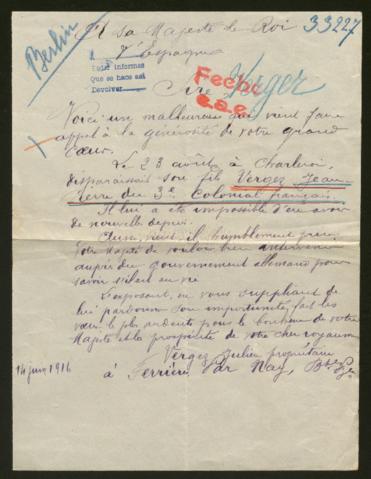 Berlin
A sa Majesté le Roi
33227
d'Espagne
A
Pedir informes
Que se haga así
Devolver
Sire
Verger
Fecho
Voici un malheureux qui vient faire
appel à la générosité de votre grand
cœur.
Le 23 août, à Charleroi
disparaissait son fils Vergez Jean
Pierre du 3e Colonial français.
Il lui a été impossible d'en avoir
de nouvelle depuis.
Aussi vient il humblement prier
Votre Majesté de vouloir bien intervenir
auprès du gouvernement allemand pour
savoir s'il est en vie
L'exposant, en vous suppliant de
lui pardonner son importunité, fait les
vœux les plus ardents pour le bonheur de votre
Majesté et la prospérité de votre cher royaume
Vergez Julien propriétaire
14 juin 1916
à Ferrières par Nay, Bses Pyr